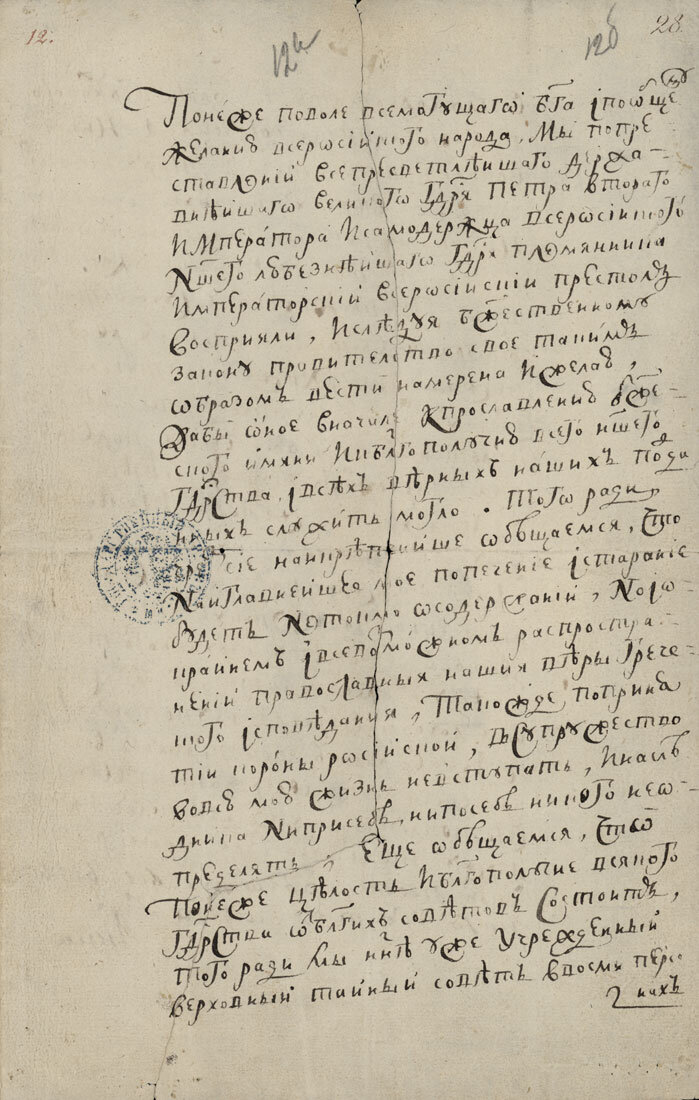 12.
12а
12б
28.
Понеже поволе всемогущаго бга iпообще му
желанию всеросiйского народа, Мы попре
ставленiй всепресветлѣишаго держа-
внѣишаго великого Гдря Петра второго
Императора Исамодержца всеросiйского
Ншего любезнѣишаго Гдря племянника
Императорскiй всеросiйскiй престолъ
восприяли, Ислѣдуя бжественному
закону правителство свое такимъ
образомъ вести намерена Ижелаю,
Дабы оное вначале Кпрославлению бже
ского имяни Икблгополучию всего ншего
Гдрства, iвсѣхъ вѣрныхъ нашихъ подда
ныхъ служить могло. Того ради,
чрезъ сие наикрѣпчайше обѣщаемся, что
Наиглавнейшее мое попечение iстарание
будетъ Нетокмо осодержанiй, Но iо
крайнемъ iвсевозможномъ распростра-
ненiй православныя нашия вѣры Грече
ского iсповѣдания, Такожде поприня
тiи короны росiйской, Всупружество
вовсю мою жизнь невступать, Инаслѣ
дника Ниприсебѣ, нипосебѣ никого неo
пределять, Еще обѣщаемся, Что
Понеже цѣлость Иблгополучие всякого
Гдрства отблгихъ совѣтовъ Состоитъ,
того ради Мы ннѣ уже Учрежденный
верховный тайный совѣтъ ввосми персо
нахъ